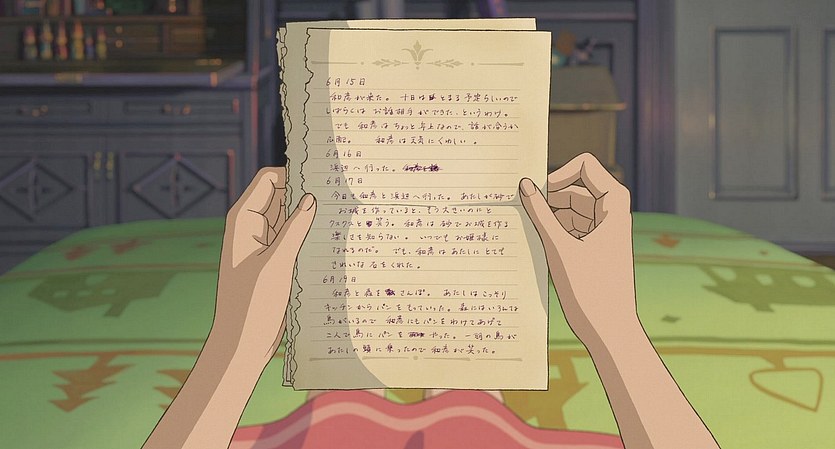 6月15日
和彦が来た。 十日ほどとまる予定らしいので
しばらくは お話相手ができた、というわけ。
でも 和彦は ちょっと年上なので、話が合うか
心配。 和彦は天気にくわしい。
6月16日
浜辺へ行った。
6月17日
今日も和彦と浜辺へ行った。 あたしが砂で
お城を作っていると、もう大きいのにと
クスクスと笑う。 和彦は砂でお城を作る
楽しさを知らない。 いつでもお姫様に
なれるのだ。 でも、和彦はあたしにとても
きれいな石をくれた。
6月19日
和彦と森をさんぽ。 あたしは こっそり
キッチンからパンをもっていた。 森にはいろんな
鳥がいるので 和彦にもパンをわけてあげて
二人で鳥にパンを やった。 一羽の鳥が
あたしの頭に乗ったので和彦が笑った。